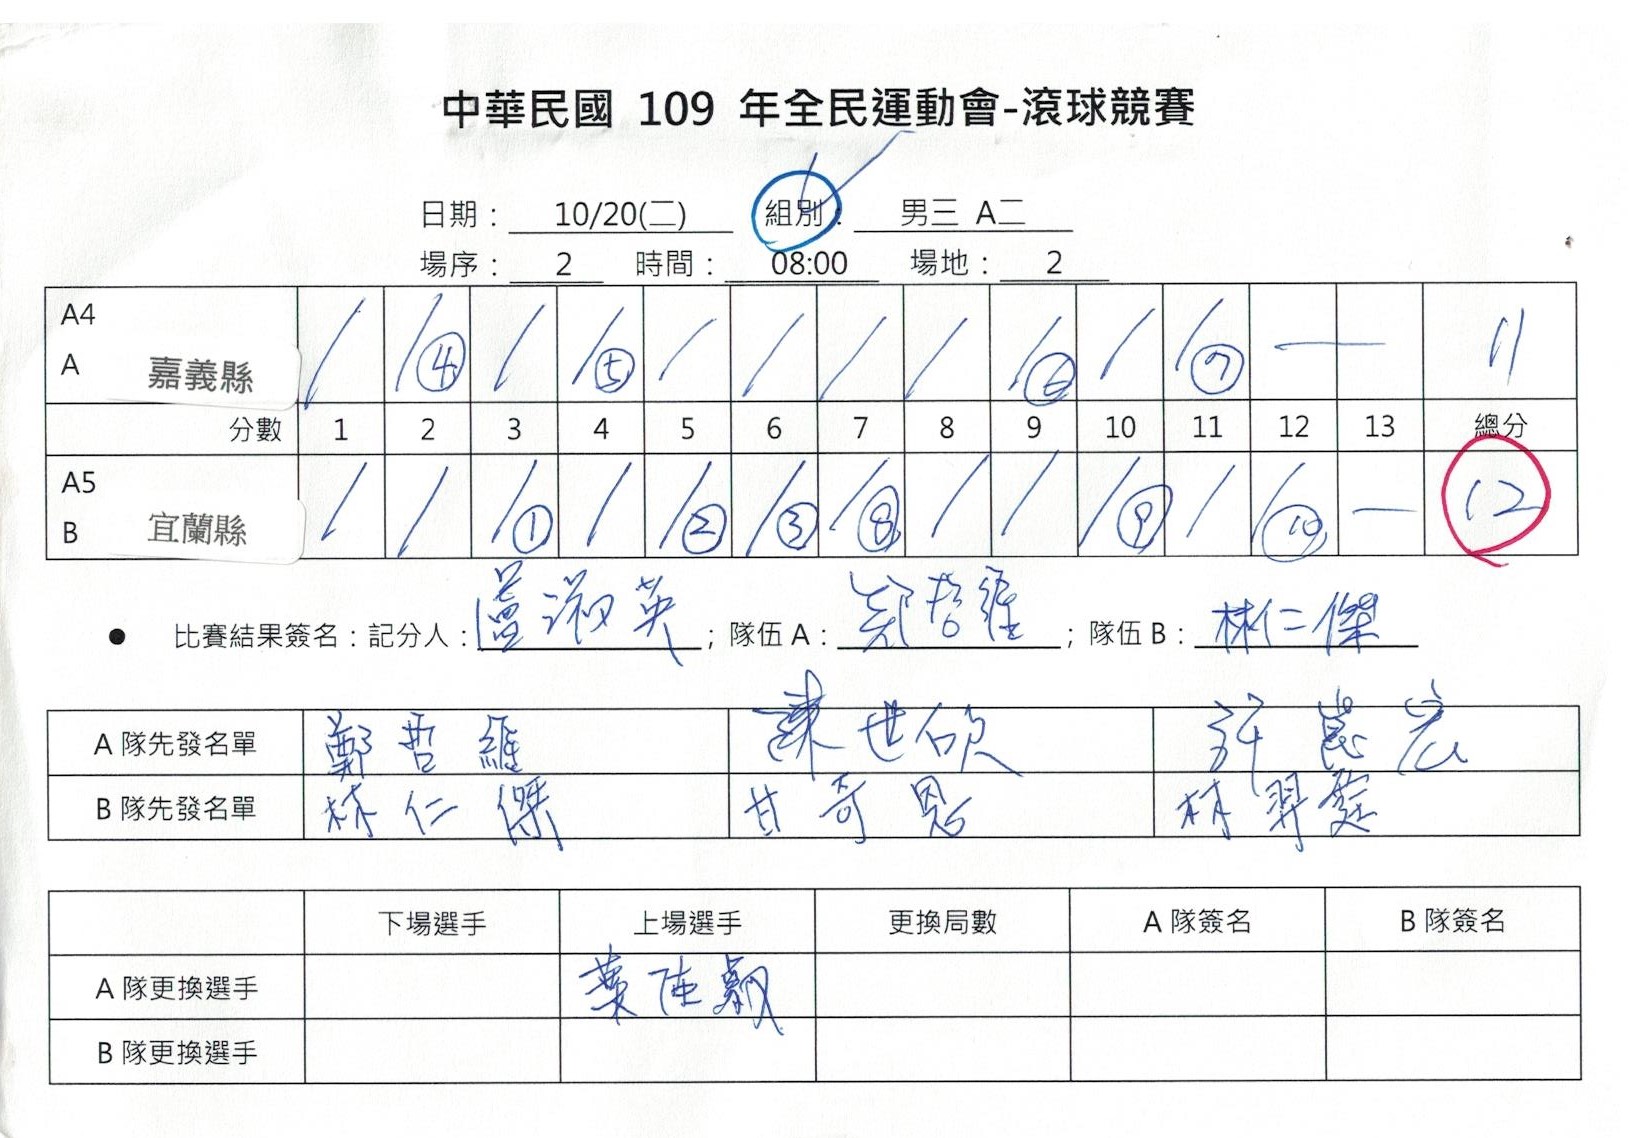 中華民國 109 年全民運動會-滾球競賽
日期： 10/20(二) 組別： 男三 A二
場序： 2 時間： 08:00 場地： 2
A4
A 嘉義縣 / /④ / /⑤ / / / / /⑥ / /⑦ — 11
分數 1 2 3 4 5 6 7 8 9 10 11 12 13 總分
A5
B 宜蘭縣 / / /① / /② /③ /⑧ / / /⑨ / /⑩ — 12
● 比賽結果簽名：記分人： 淑英 ；隊伍 A： 鄭哲維 ；隊伍 B： 林仁傑
A 隊先發名單 鄭哲維 陳世欣 許崑宏
B 隊先發名單 林仁傑 甘奇恩 林羿霆
下場選手 上場選手 更換局數 A 隊簽名 B 隊簽名
A 隊更換選手 葉
B 隊更換選手